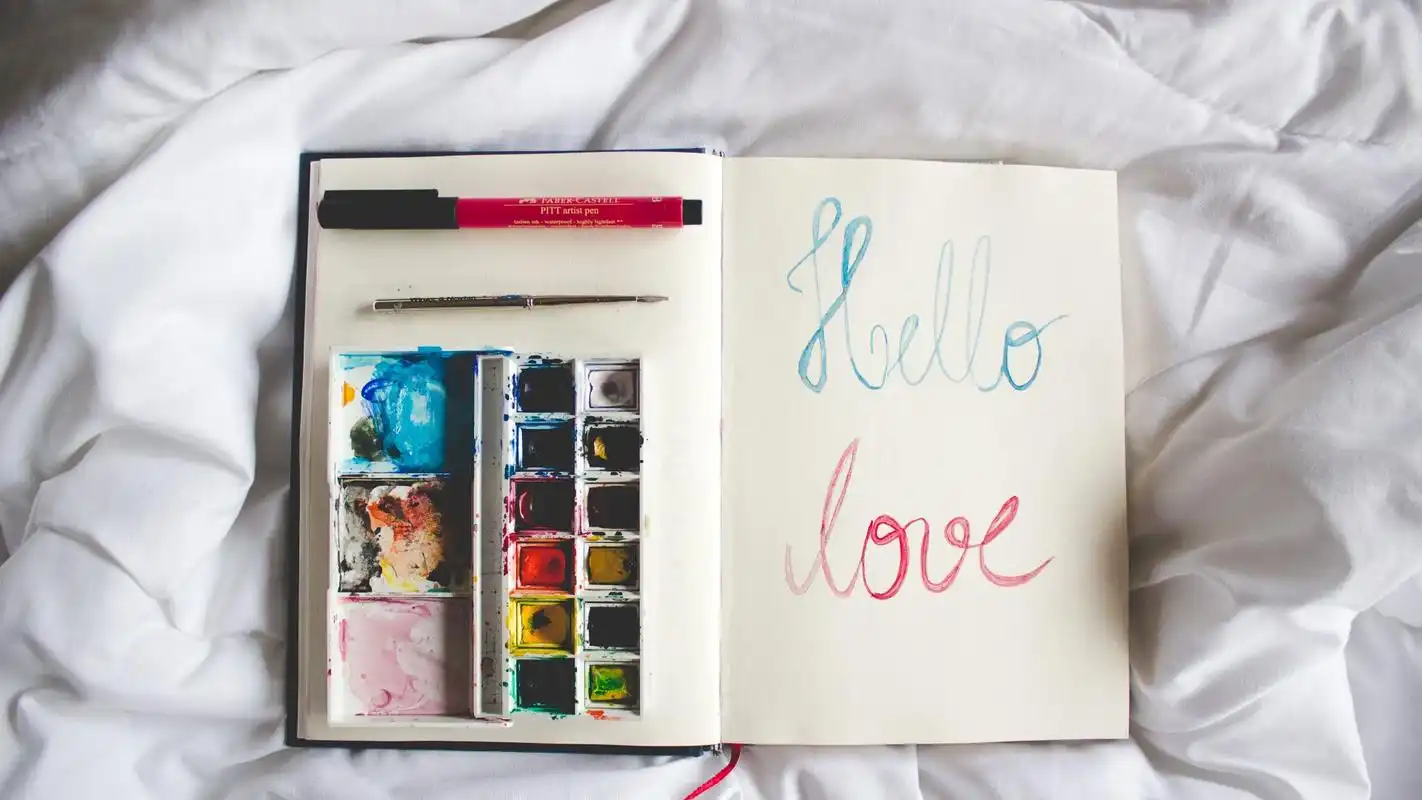 FABER-CASTELL
PITT artist pen
Hello
love